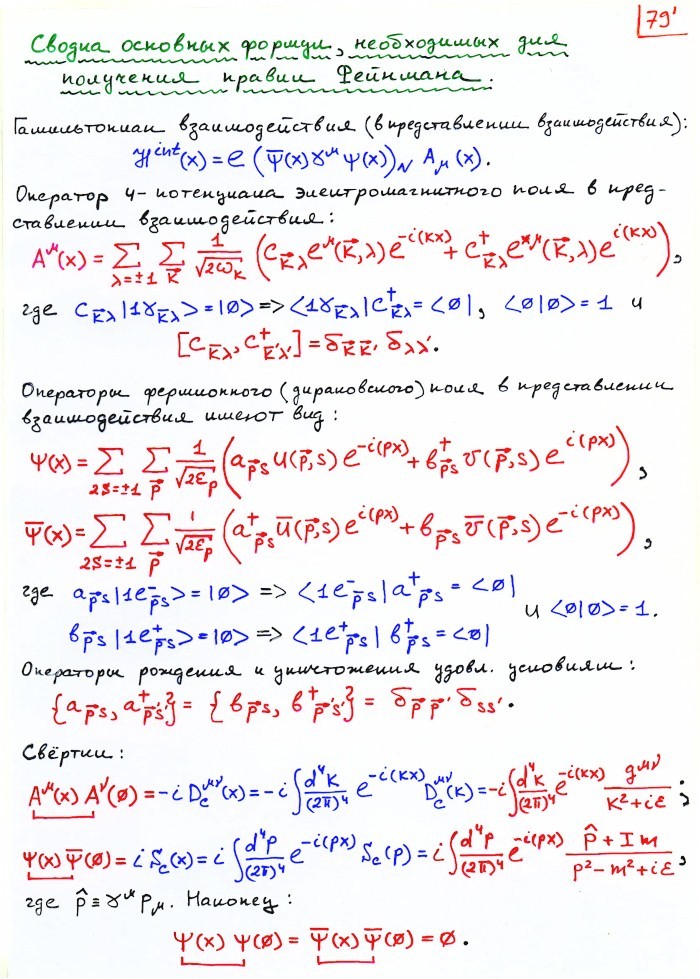 79'
Сводка основных формул, необходимых для
получения правил Фейнмана.
Гамильтониан взаимодействия (в представлении взаимодействия):
ℋ^{int}(x) = e (ψ̄(x) γ^μ ψ(x))_N A_μ(x).
Оператор 4-потенциала электромагнитного поля в пред-
ставлении взаимодействия:
A^μ(x) = Σ_{λ=±1} Σ_{k⃗} 1/√(2ω_k) (c_{k⃗λ} e^μ(k⃗,λ) e^{-i(kx)} + c†_{k⃗λ} e^{*μ}(k⃗,λ) e^{i(kx)}),
где c_{k⃗λ}|1γ_{k⃗λ}> = |0> => <1γ_{k⃗λ}|c†_{k⃗λ} = <0|, <0|0> = 1 и
[c_{k⃗λ}, c†_{k⃗'λ'}] = δ_{k⃗k⃗'} δ_{λλ'}.
Операторы фермионного (дираковского) поля в представлении
взаимодействия имеют вид:
ψ(x) = Σ_{2s=±1} Σ_{p⃗} 1/√(2ε_p) (a_{p⃗s} u(p⃗,s) e^{-i(px)} + b†_{p⃗s} v(p⃗,s) e^{i(px)}),
ψ̄(x) = Σ_{2s=±1} Σ_{p⃗} 1/√(2ε_p) (a†_{p⃗s} ū(p⃗,s) e^{i(px)} + b_{p⃗s} v̄(p⃗,s) e^{-i(px)}),
где a_{p⃗s}|1e⁻_{p⃗s}> = |0> => <1e⁻_{p⃗s}|a†_{p⃗s} = <0|
и <0|0> = 1.
b_{p⃗s}|1e⁺_{p⃗s}> = |0> => <1e⁺_{p⃗s}|b†_{p⃗s} = <0|
Операторы рождения и уничтожения удовл. условиям:
{a_{p⃗s}, a†_{p⃗'s'}} = {b_{p⃗s}, b†_{p⃗'s'}} = δ_{p⃗p⃗'} δ_{ss'}.
Свёртки:
A^μ(x) A^ν(0) = -i D_c^{μν}(x) = -i ∫ d⁴k/(2π)⁴ e^{-i(kx)} D_c^{μν}(k) = -i ∫ d⁴k/(2π)⁴ e^{-i(kx)} g^{μν}/(k²+iε);
ψ(x) ψ̄(0) = i S_c(x) = i ∫ d⁴p/(2π)⁴ e^{-i(px)} S_c(p) = i ∫ d⁴p/(2π)⁴ e^{-i(px)} (p̂ + I m)/(p²-m²+iε),
где p̂ ≡ γ^μ p_μ. Наконец:
ψ(x) ψ(0) = ψ̄(x) ψ̄(0) = 0.